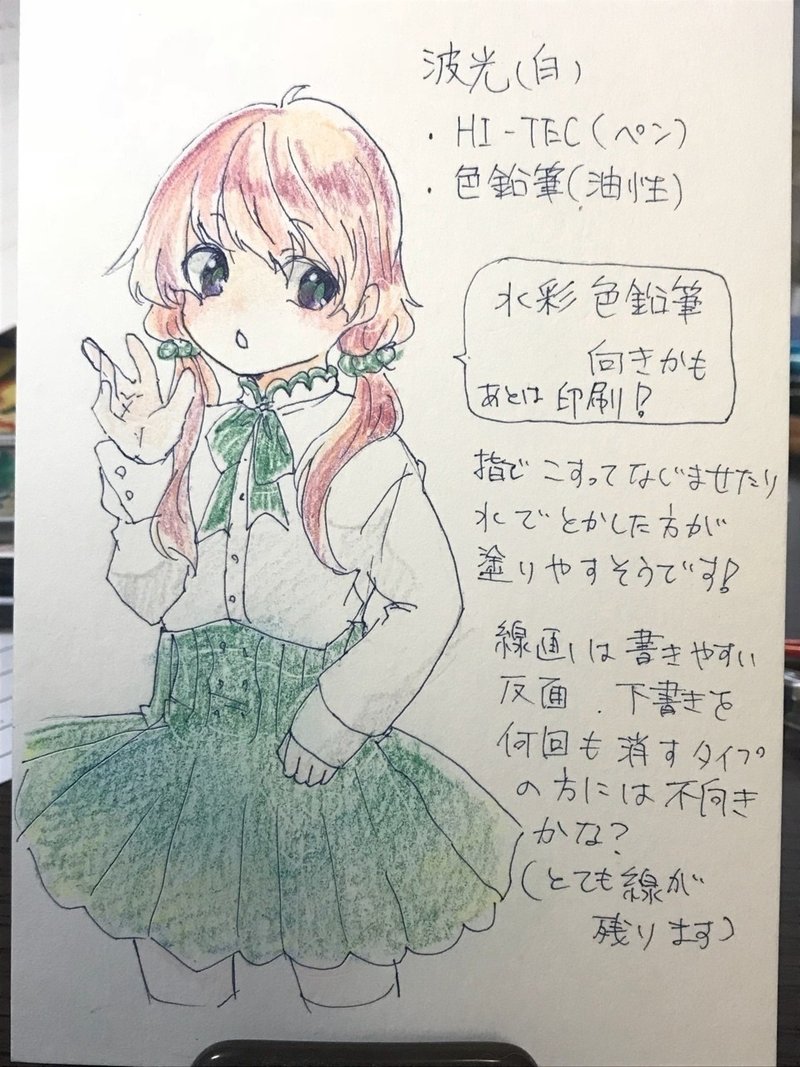 波光(白)
・HI-TEC(ペン)
・色鉛筆(油性)
水彩色鉛筆
向きかも
あとは印刷!
指でこすってなじませたり
水でとかした方が
塗りやすそうです!
線画は書きやすい
反面、下書きを
何回も消すタイプ
の方には不向き
かな?
(とても線が
残ります)